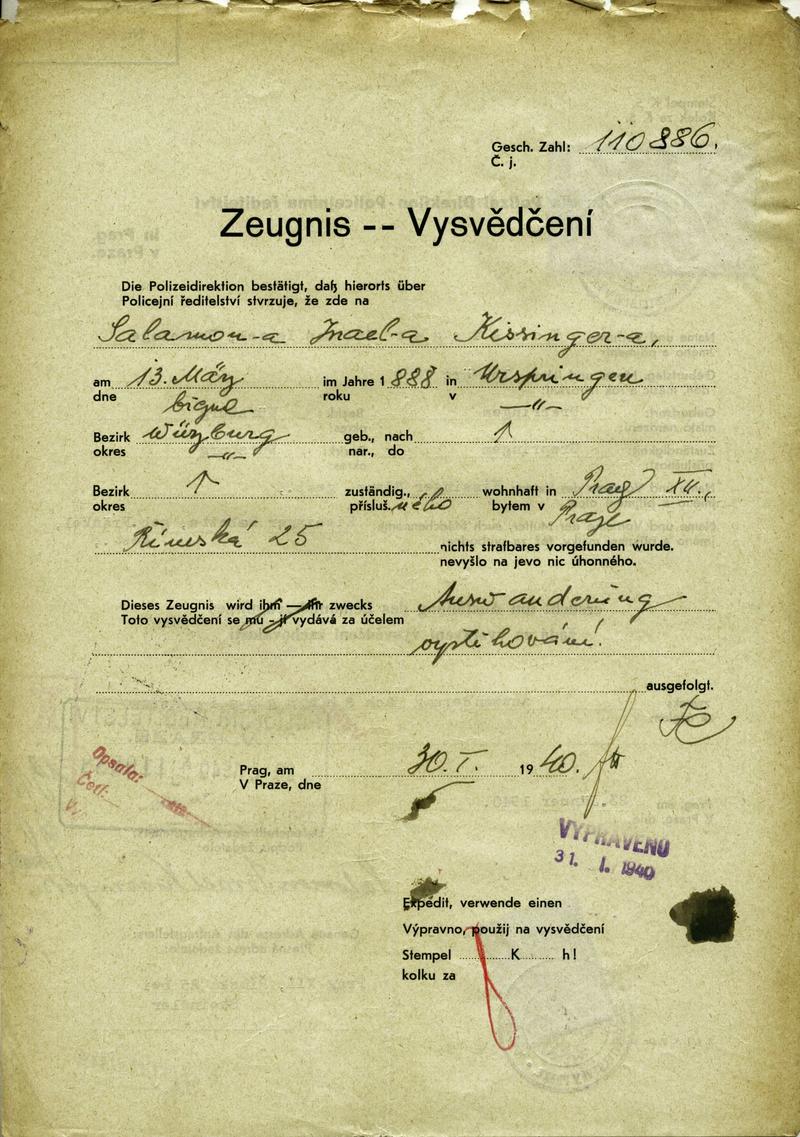 Gesch. Zahl: 110886.
Č. j.
Zeugnis -- Vysvědčení
Die Polizeidirektion bestätigt, daß hierorts über
Policejní ředitelství stvrzuje, že zde na
Salamon-a Israel-a Kissinger-a,
am 13. März im Jahre 1888 in Urspringen
dne roku v -"-
Bezirk Würzburg geb., nach ↑
okres -"- nar., do
Bezirk ↑ zuständig., wohnhaft in Prag XII.,
okres přísluš. ného bytem v Praze
Římská 25 nichts strafbares vorgefunden wurde.
nevyšlo na jevo nic úhonného.
Dieses Zeugnis wird ihm — ihr zwecks Auswanderung
Toto vysvědčení se mu - jí vydává za účelem
vystěhování.
ausgefolgt.
Prag, am 30. I. 1940.
V Praze, dne
Opsala:
Četl:
VYPRAVENO
31. I. 1940
Expedit, verwende einen
Výpravno, použij na vysvědčení
Stempel K h!
kolku za